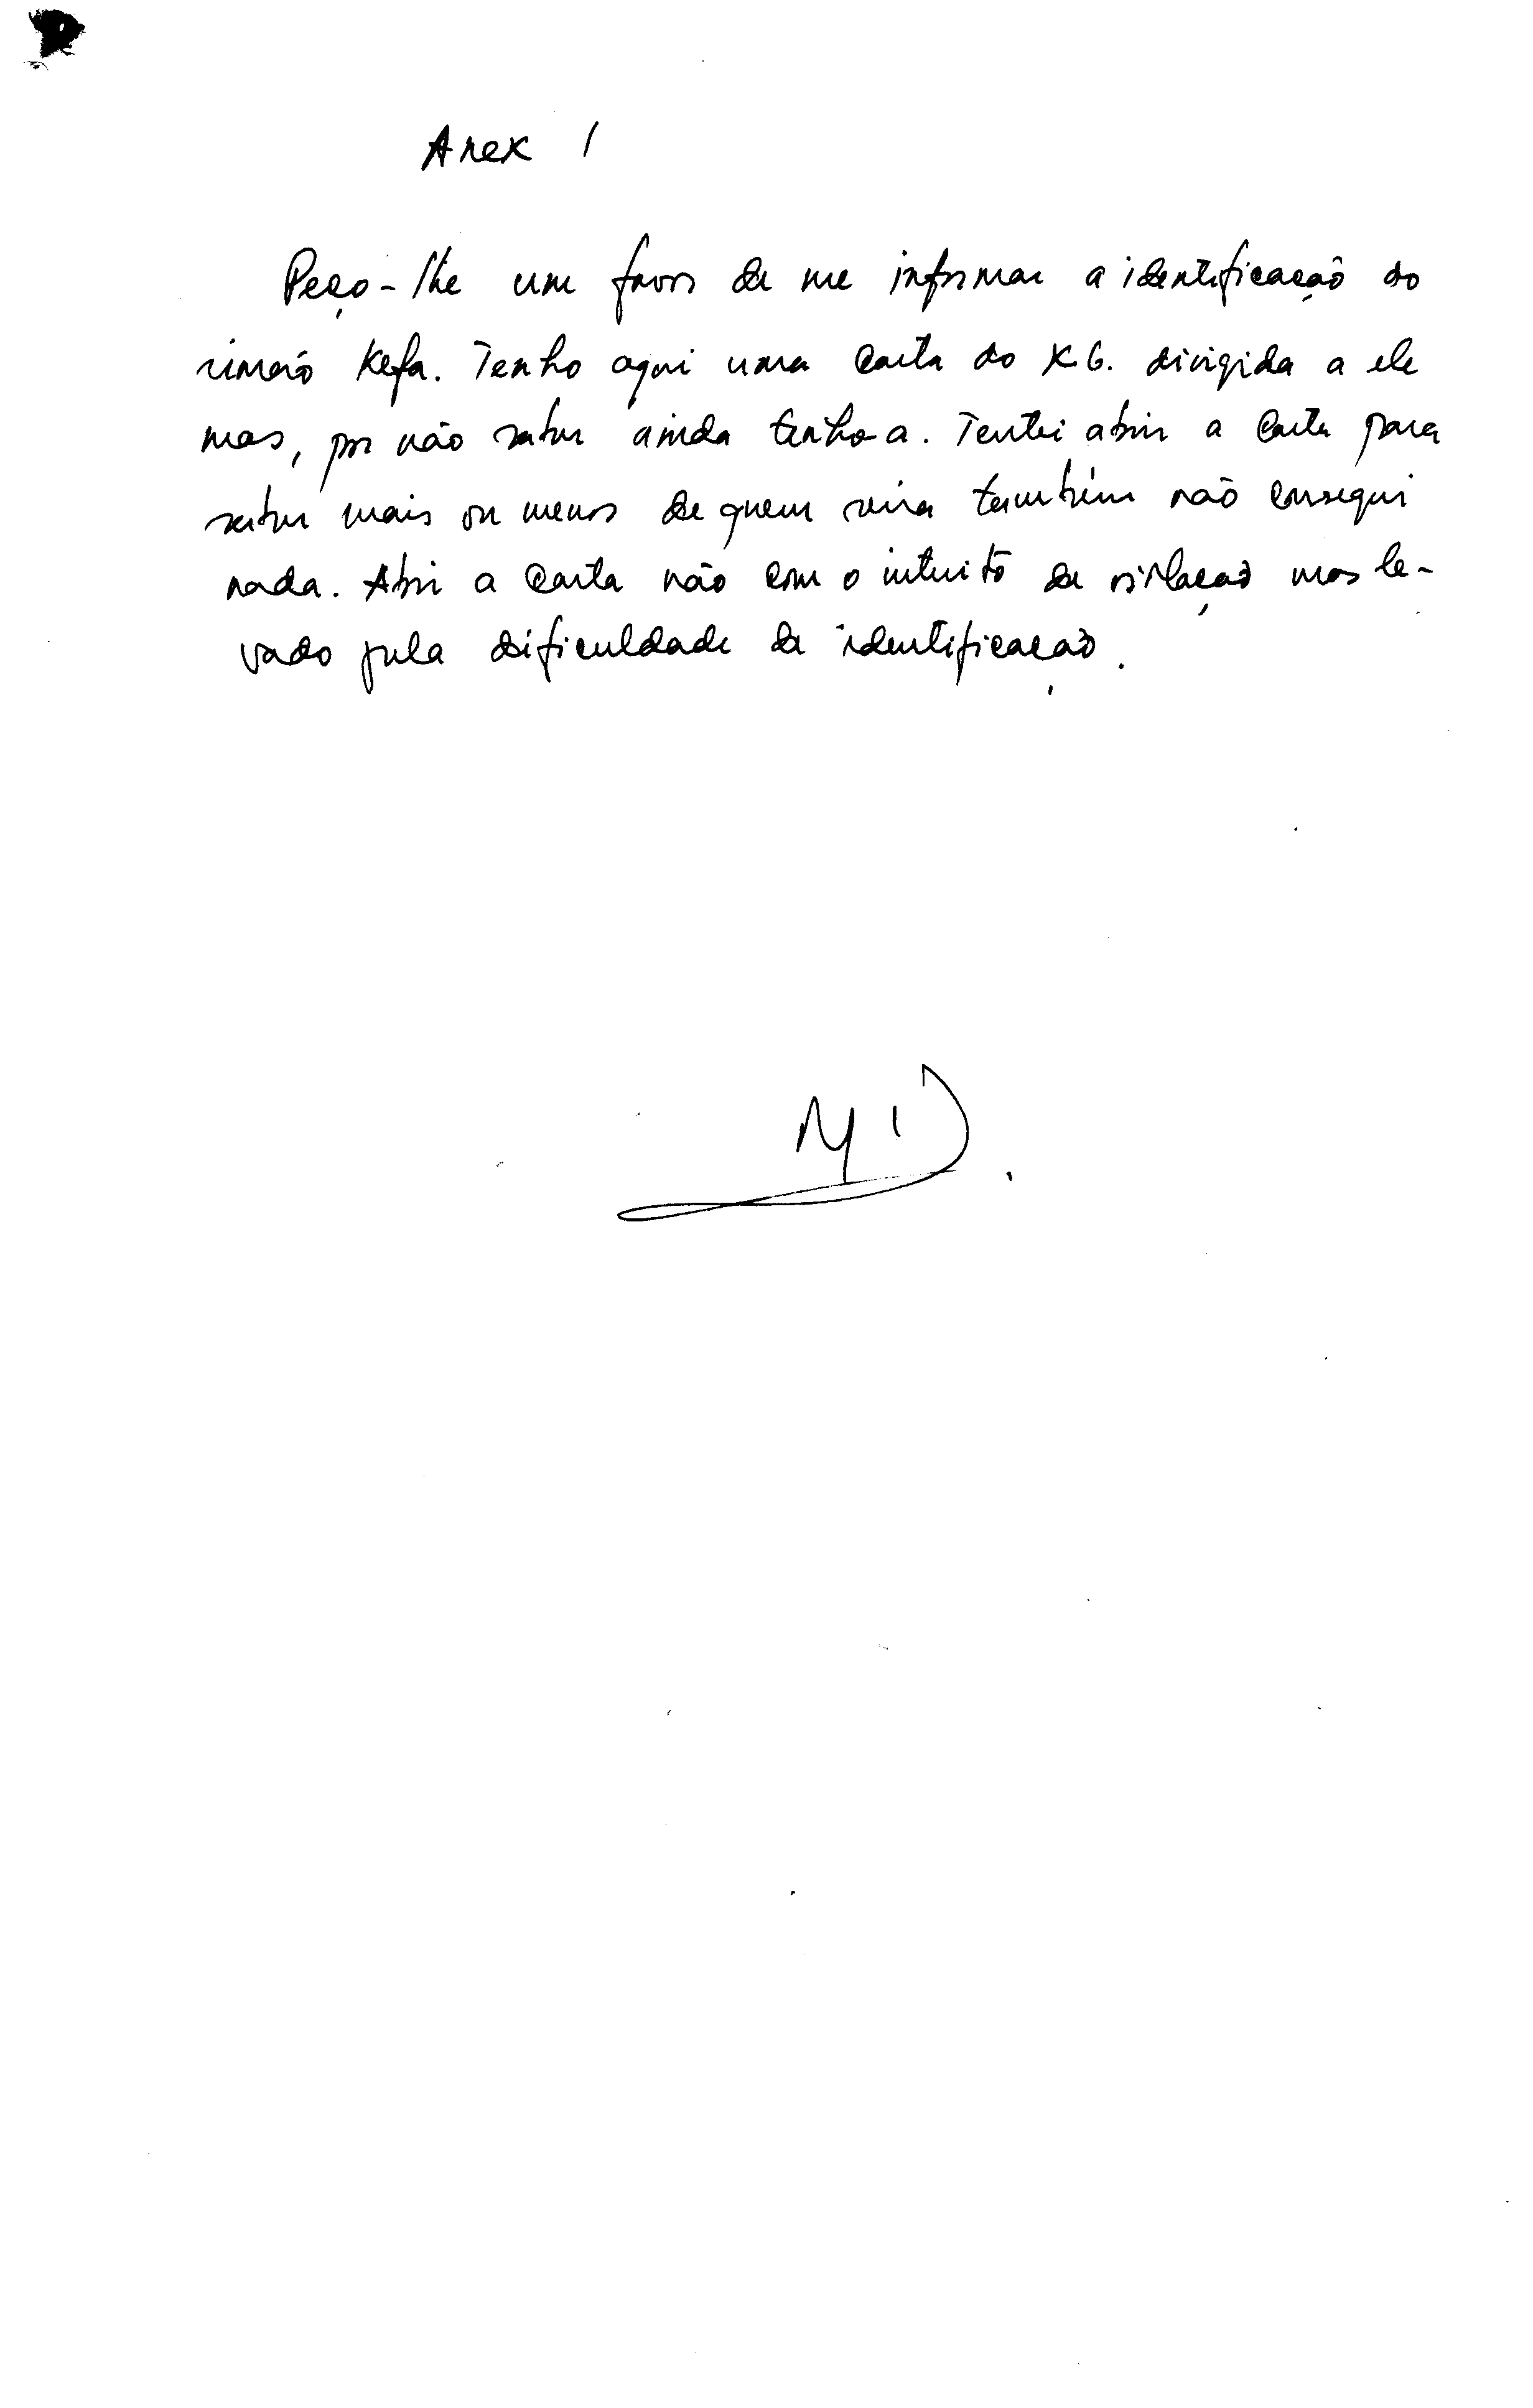 Anex 1
Peço-lhe um favor de me informar a identificação do
simão Kefa. Tenho aqui uma carta do X.G. dirigida a ele
mas, por não saber ainda tenho-a. Tentei abrir a carta para
saber mais ou menos de quem seria também não consegui
nada. Abri a carta não com o intuito de violação mas le-
vado pela dificuldade de identificação.